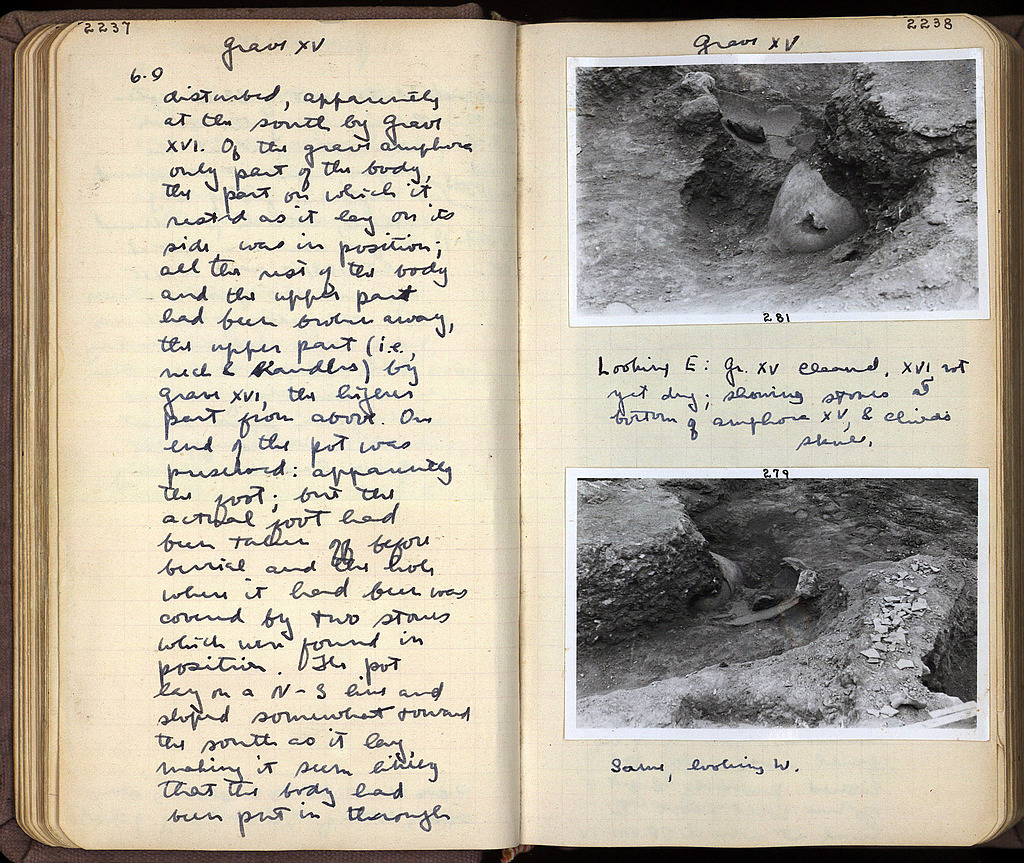 2237
Grave XV
6-9
disturbed, apparently
at the south by Grave
XVI. Of the grave amphora
only part of the body,
the part on which it
rested as it lay on its
side was in position;
all the rest of the body
and the upper part
had been broken away,
the upper part (i.e,
neck & handles) by
grave XVI, the higher
part from above. One
end of the pot was
preserved: apparently
the foot; but the
actual foot had
been taken off before
burial and the hole
where it had been was
covered by two stones
which were found in
position. The pot
lay on a N-S line and
sloped somewhat toward
the south as it lay,
making it seem likely
that the body had
been put in through
2238
Grave XV
281
Looking E: Gr. XV cleaned, XVI not
yet dug; showing stones at
bottom of amphora XV, & child's
skull.
279
Same, looking W.